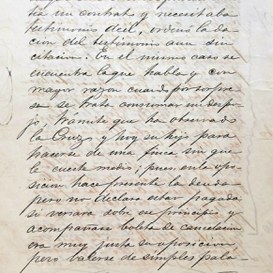 tía un contrato y necesitaba
testimonio de él, ordenó la da
cion del testimonio aun sin
citacion. En el mismo caso se
encuentra la que habla y con
mayor razon cuando por sorpre
sa se trata consumar un despo
jo, trámite que ha observado
la Cruz y hoy su hijo para
hacerse de una finca sin que
le cueste medio; pues en la opo
sicion hace presente la deuda
pero no declara estar pagada
si versara sobre su principio y
acompañara boleta de cancelacion
era muy justa su oposicion
pero valerse de simples pala-